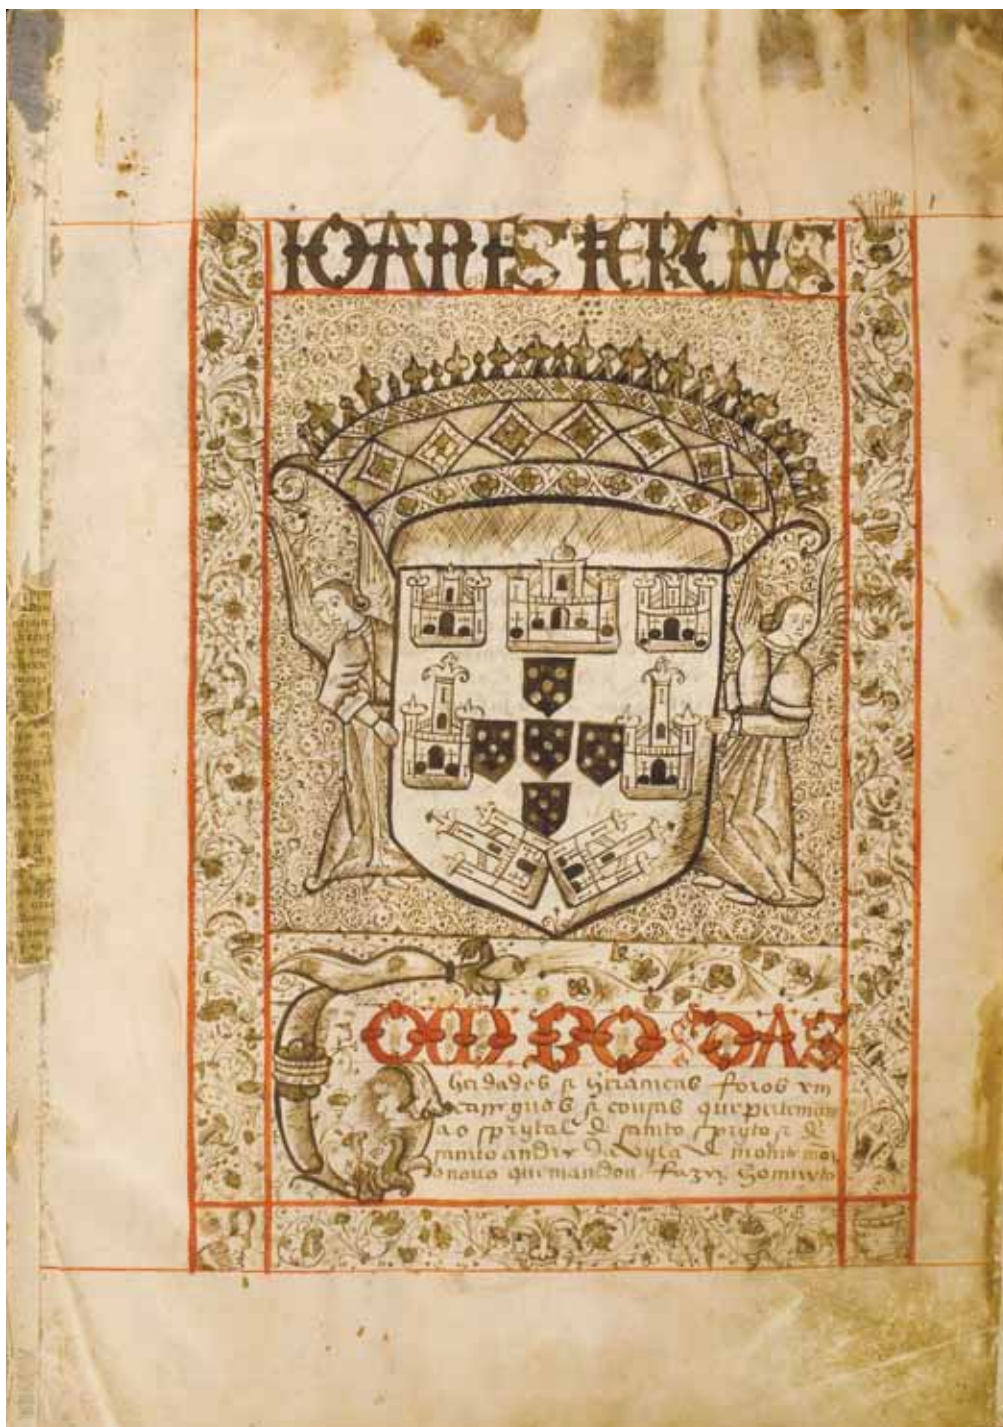 IOANES TERCIVS
TOMBO DAS
herdades & heranças foros em
carreguos & cousas que pertemcem
ao sprytal de samto spryto & de
samto andre da vyla de monte mor
o nouo que mandou fazer homuyto